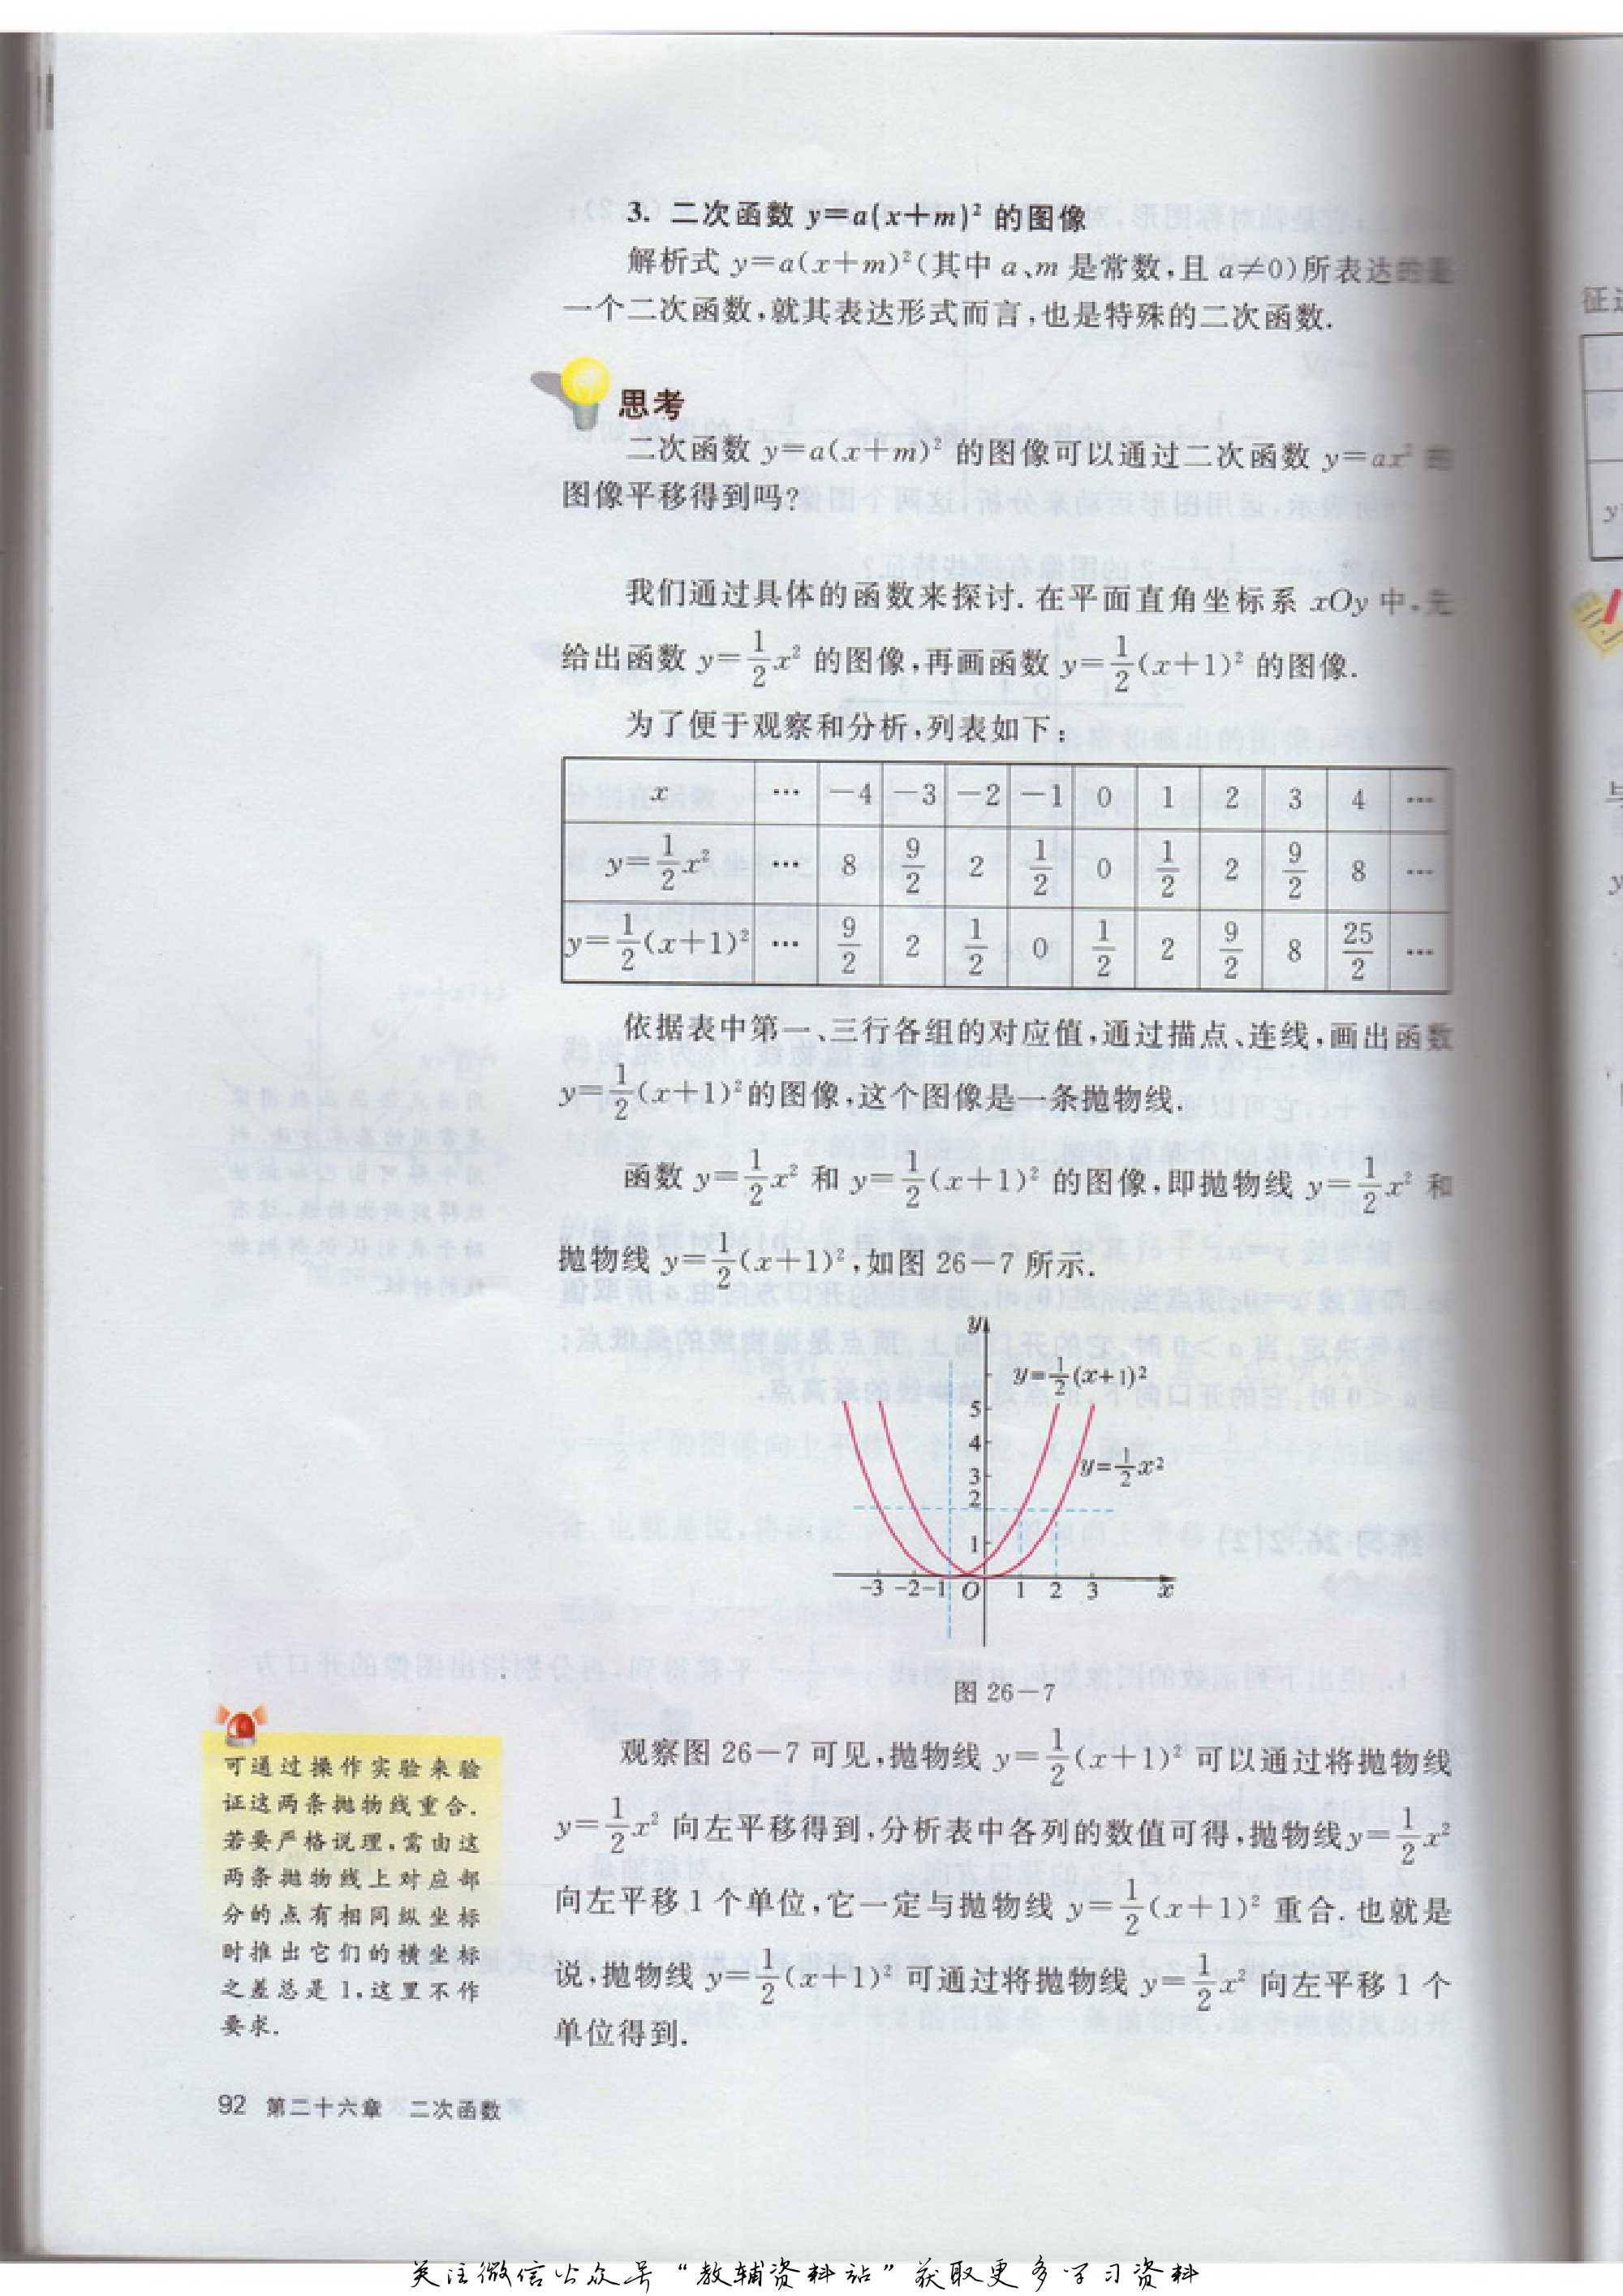 3. 二次函数 y=a(x+m)² 的图像
解析式 y=a(x+m)²(其中 a、m 是常数,且 a≠0)所表达的是
一个二次函数,就其表达形式而言,也是特殊的二次函数.
思考
二次函数 y=a(x+m)² 的图像可以通过二次函数 y=ax² 的
图像平移得到吗?
我们通过具体的函数来探讨.在平面直角坐标系 xOy 中,先
给出函数 y=1/2x² 的图像,再画函数 y=1/2(x+1)² 的图像.
为了便于观察和分析,列表如下:
x … -4 -3 -2 -1 0 1 2 3 4 …
y=1/2x² … 8 9/2 2 1/2 0 1/2 2 9/2 8 …
y=1/2(x+1)² … 9/2 2 1/2 0 1/2 2 9/2 8 25/2 …
依据表中第一、三行各组的对应值,通过描点、连线,画出函数
y=1/2(x+1)²的图像,这个图像是一条抛物线.
函数 y=1/2x² 和 y=1/2(x+1)² 的图像,即抛物线 y=1/2x² 和
抛物线 y=1/2(x+1)²,如图 26-7 所示.
y
y=1/2(x+1)²
5
4
y=1/2x²
3
2
1
-3 -2 -1 O 1 2 3 x
图 26-7
观察图 26-7 可见,抛物线 y=1/2(x+1)² 可以通过将抛物线
y=1/2x² 向左平移得到,分析表中各列的数值可得,抛物线y=1/2x²
向左平移 1 个单位,它一定与抛物线 y=1/2(x+1)² 重合.也就是
说,抛物线 y=1/2(x+1)² 可通过将抛物线 y=1/2x² 向左平移 1 个
单位得到.
可通过操作实验来验
证这两条抛物线重合.
若要严格说理,需由这
两条抛物线上对应部
分的点有相同纵坐标
时推出它们的横坐标
之差总是 1,这里不作
要求.
92 第二十六章 二次函数
关注微信公众号“教辅资料站”获取更多学习资料